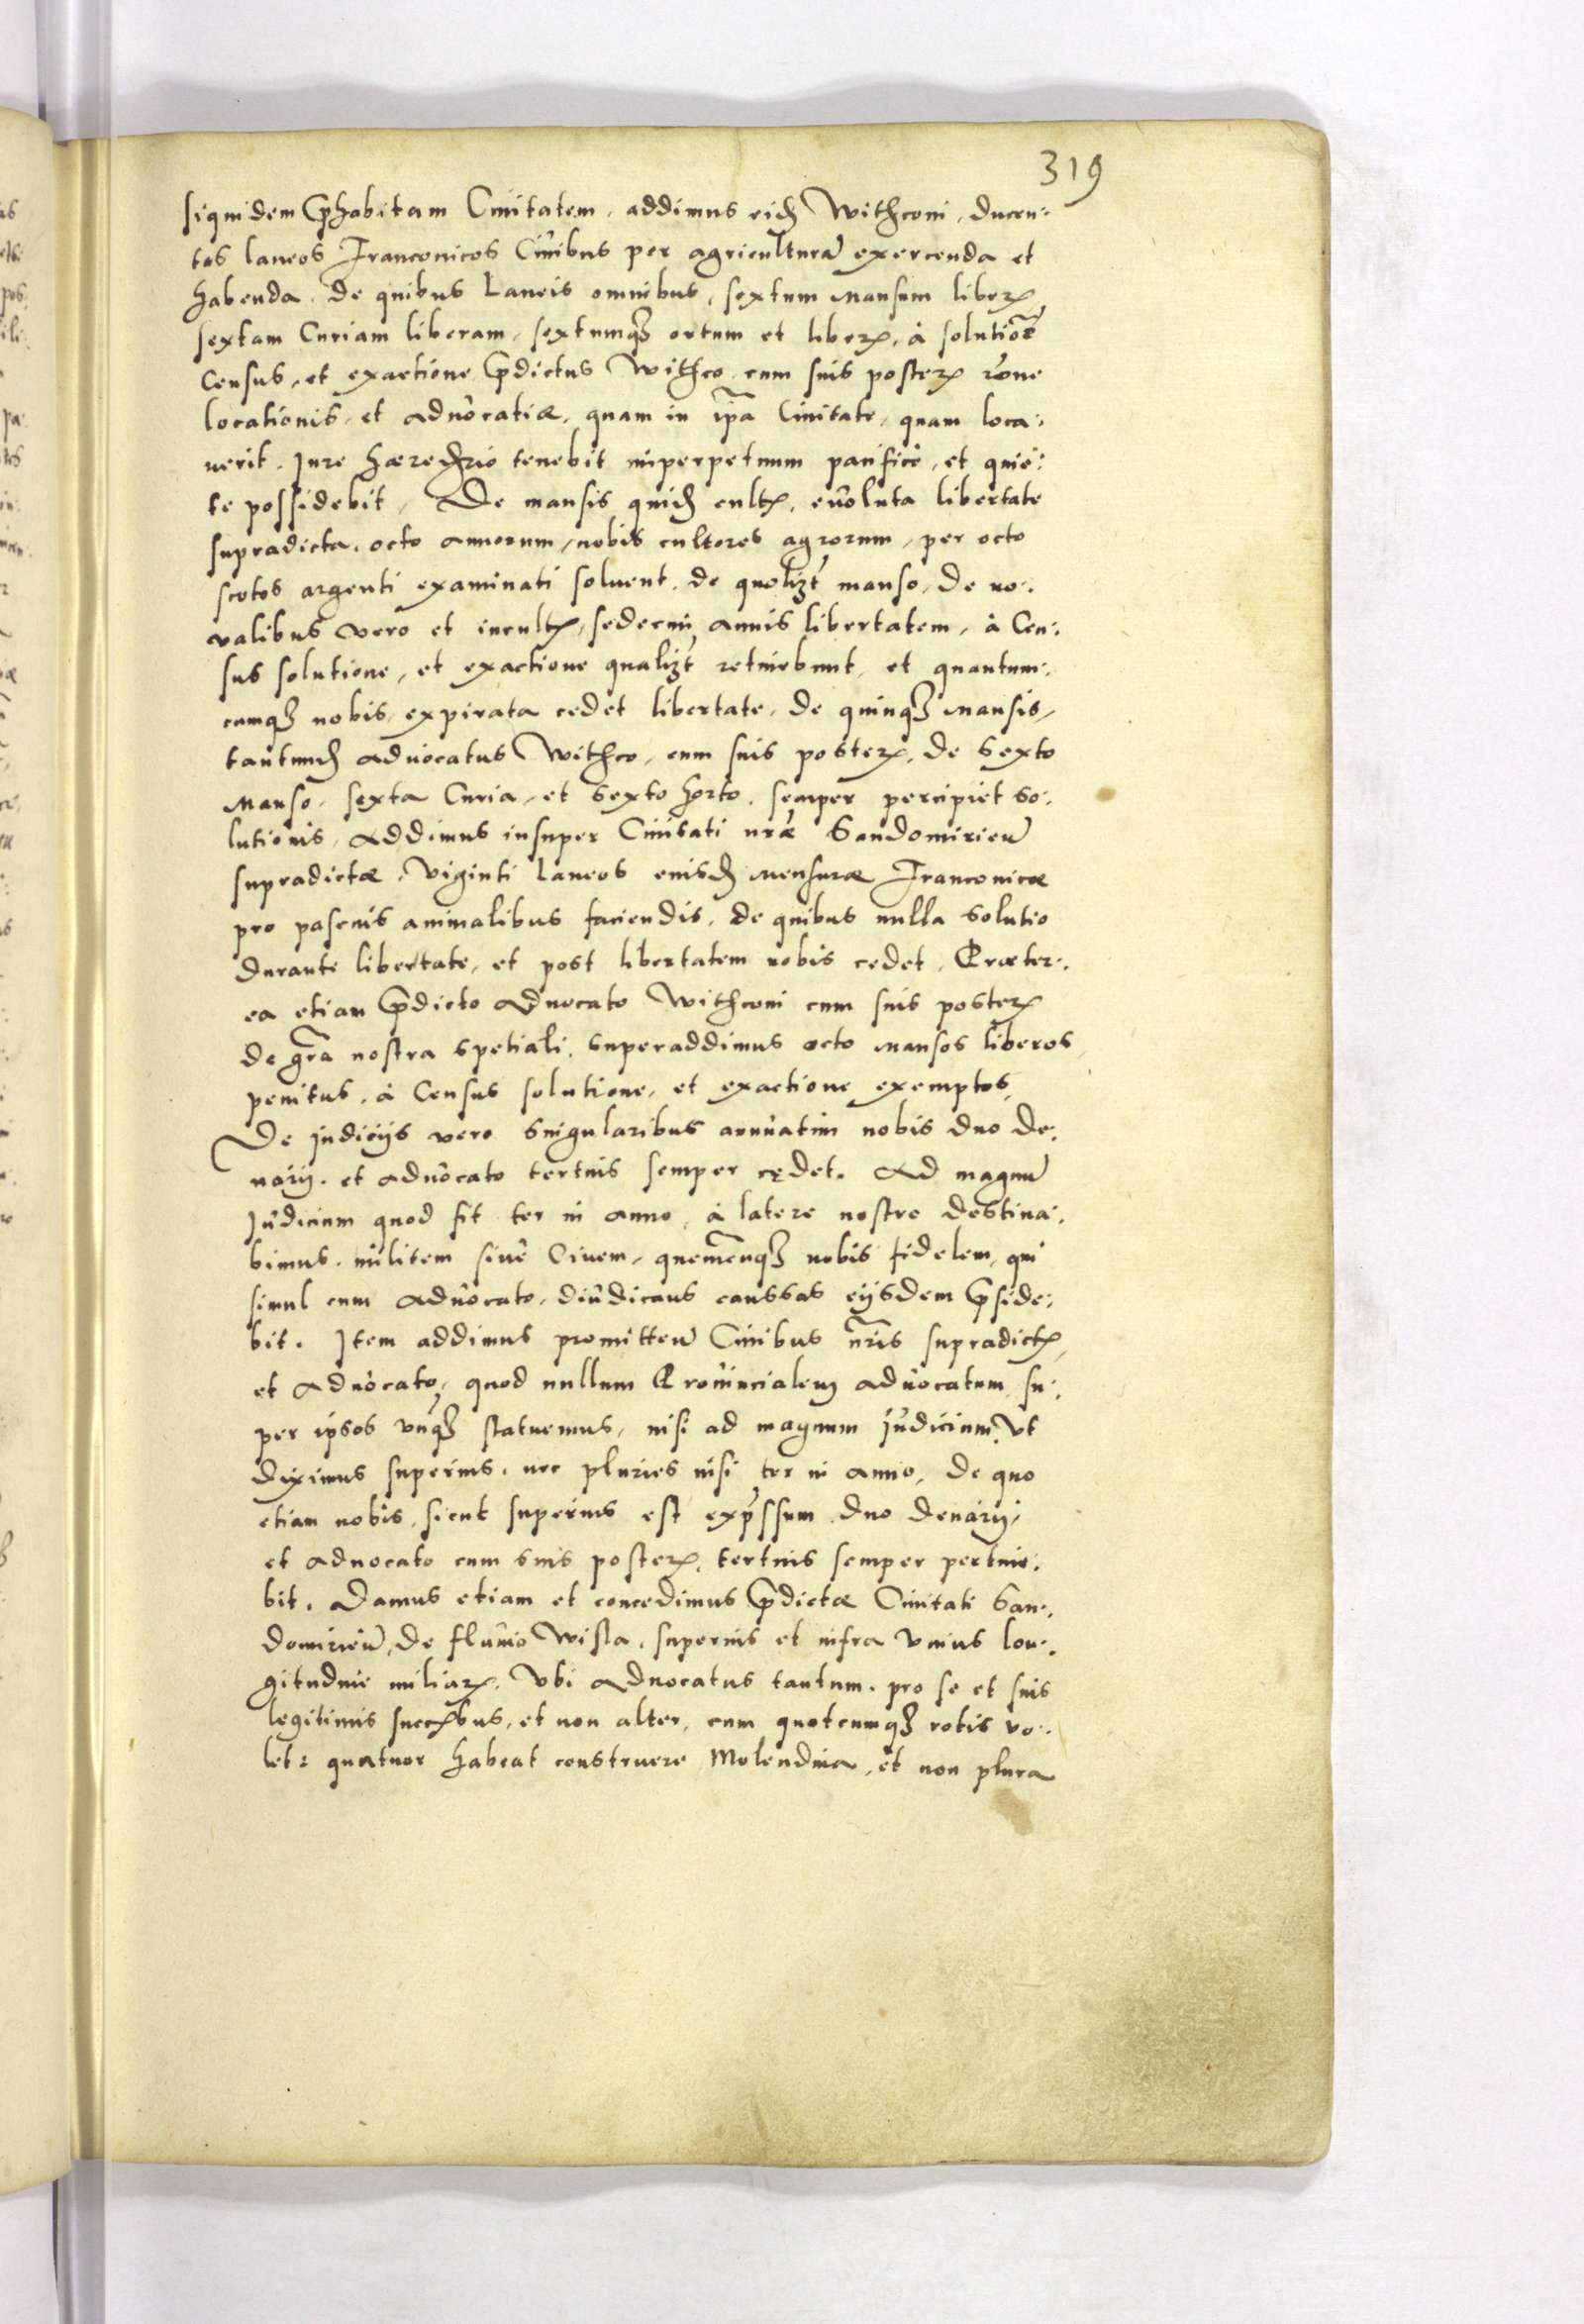 319
siquidem p̄habitam Ciuitatem, addimus eid̄ Withconi, ducen:
tos laneos Franconicos Ciuibus per agriculturā exercenda et
habenda, de quibus Laneis omnibus, sextum Mansum liberꝝ
sextam Curiam liberam, sextumqꝫ ortum et liberꝝ, à solutiōe
Census, et exactione p̄dictus Withco cum suis posterꝝ rōne
locationis, et aduocatiæ, quam in ip̄a Ciuitate, quam loca:
uerit. Jure hæredrio tenebit inperpetuum pacificè, et quiè:
te possidebit, De mansis quid̄ cultꝝ, euoluta libertate
supradicta, octo annorum, nobis cultores agrorum, per octo
scotos argenti examinati soluent, de quolizt manso, de no:
valibus vero et incultꝝ, sedecim annis libertatem, à Cen:
sus solutione, et exactione qualizt retinebunt, et quantum:
cumqꝫ nobis, expirata cedet libertate, de quinqꝫ Mansis,
tantund̄ aduocatus Withco, cum suis posterꝝ, de sexto
Manso, sexta Curia, et sexto horto, semper percipiet so:
lutionis, Addimus insuper Ciuitati nr̄æ Sandomirień
supradictæ, Viginti Laneos eiusd̄ mensuræ Franconicæ
pro pascuis animalibus faciendis, de quibus nulla solutio
durante libertate, et post libertatem nobis cedet, Præter:
ea etiam p̄dicto Aduocato Withconi cum suis posterꝝ
de gr̄a nostra spetiali, superaddimus octo Mansos liberos,
penitus, à Census solutione, et exactione exemptos,
De judicijs vero singularibus annuatim nobis duo de:
narij, et aduocato tertius semper cędet. Ad magnū
Judicium quod fit ter in anno, à latere nostro destina:
bimus, militem siue Ciuem, quemcunqꝫ nobis fidelem, qui
simul cum aduocato, diiudicans caussas eijsdem p̄side:
bit. Item addimus promitteń Ciuibus nr̄is supradictꝝ,
et Aduocato, quod nullum Prouincialem aduocatum su:
per ipsos vnqꝫ statuemus, nisi ad magnum judicium, vt
diximus superius, nec pluries nisi ter in anno, de quo
etiam nobis, sicut superius est exp̄ssum duo denarij,
et aduocato cum suis posterꝝ, tertius semper pertine:
bit. Damus etiam et concedimus p̄dictæ Ciuitati San:
domirień, de fluuio Wisla, superius et infra vnius lon:
gitudine miliarꝝ, Vbi aduocatus tantum, pro se et suis
legitimis succꝝbus, et non alter, cum quotcumqꝫ rotis vo:
let: quatuor habeat construere Molendina, et non plura